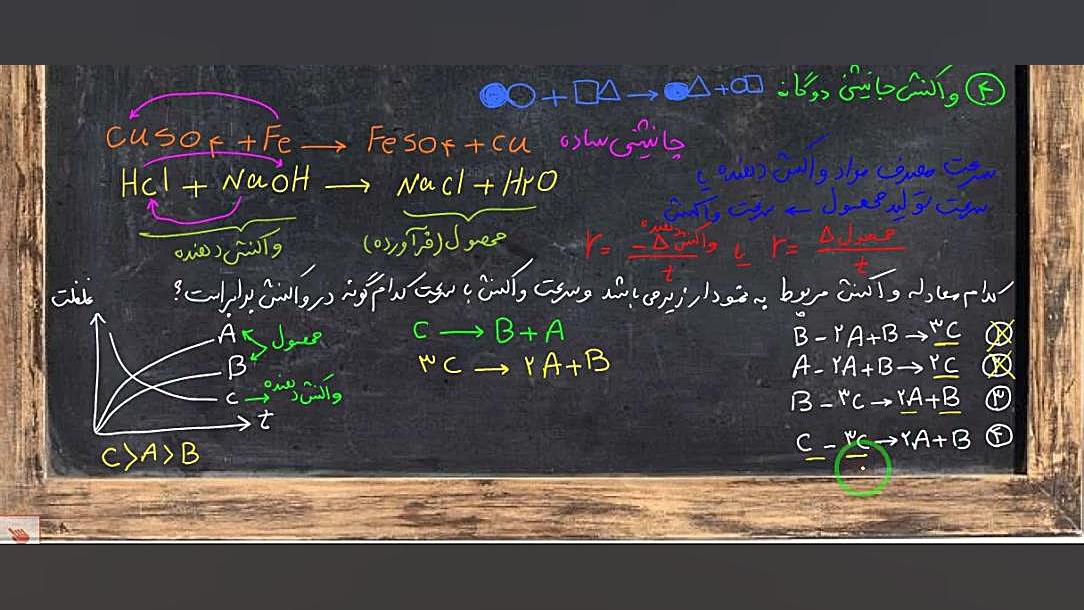 ۴ واکنش جانیشنی دوگانه
CuSO۴ + Fe → FeSO۴ + Cu جانیشنی ساده
Hcl + NaOH → Nacl + H۲O
واکنش دهنده
محصول (فرآورده)
سرعت مصرف مواد واکنش دهنده یا
سرعت تولید محصول ← سرعت واکنش
r = −Δ واکنش دهنده / t یا r = Δ محصول / t
کدام معادله واکنش مربوط به نمودار زیر می باشد و سرعت واکنش با سرعت کدام گونه در واکنش برابر است؟
غلظت
A
B
C
t
محصول
واکنش دهنده
C > A > B
C → B + A
۳C → ۲A + B
۱ B - ۲A + B → ۳C
۲ A - ۲A + B → ۲C
۳ B - ۳C → ۲A + B
۴ C - ۳C → ۲A + B